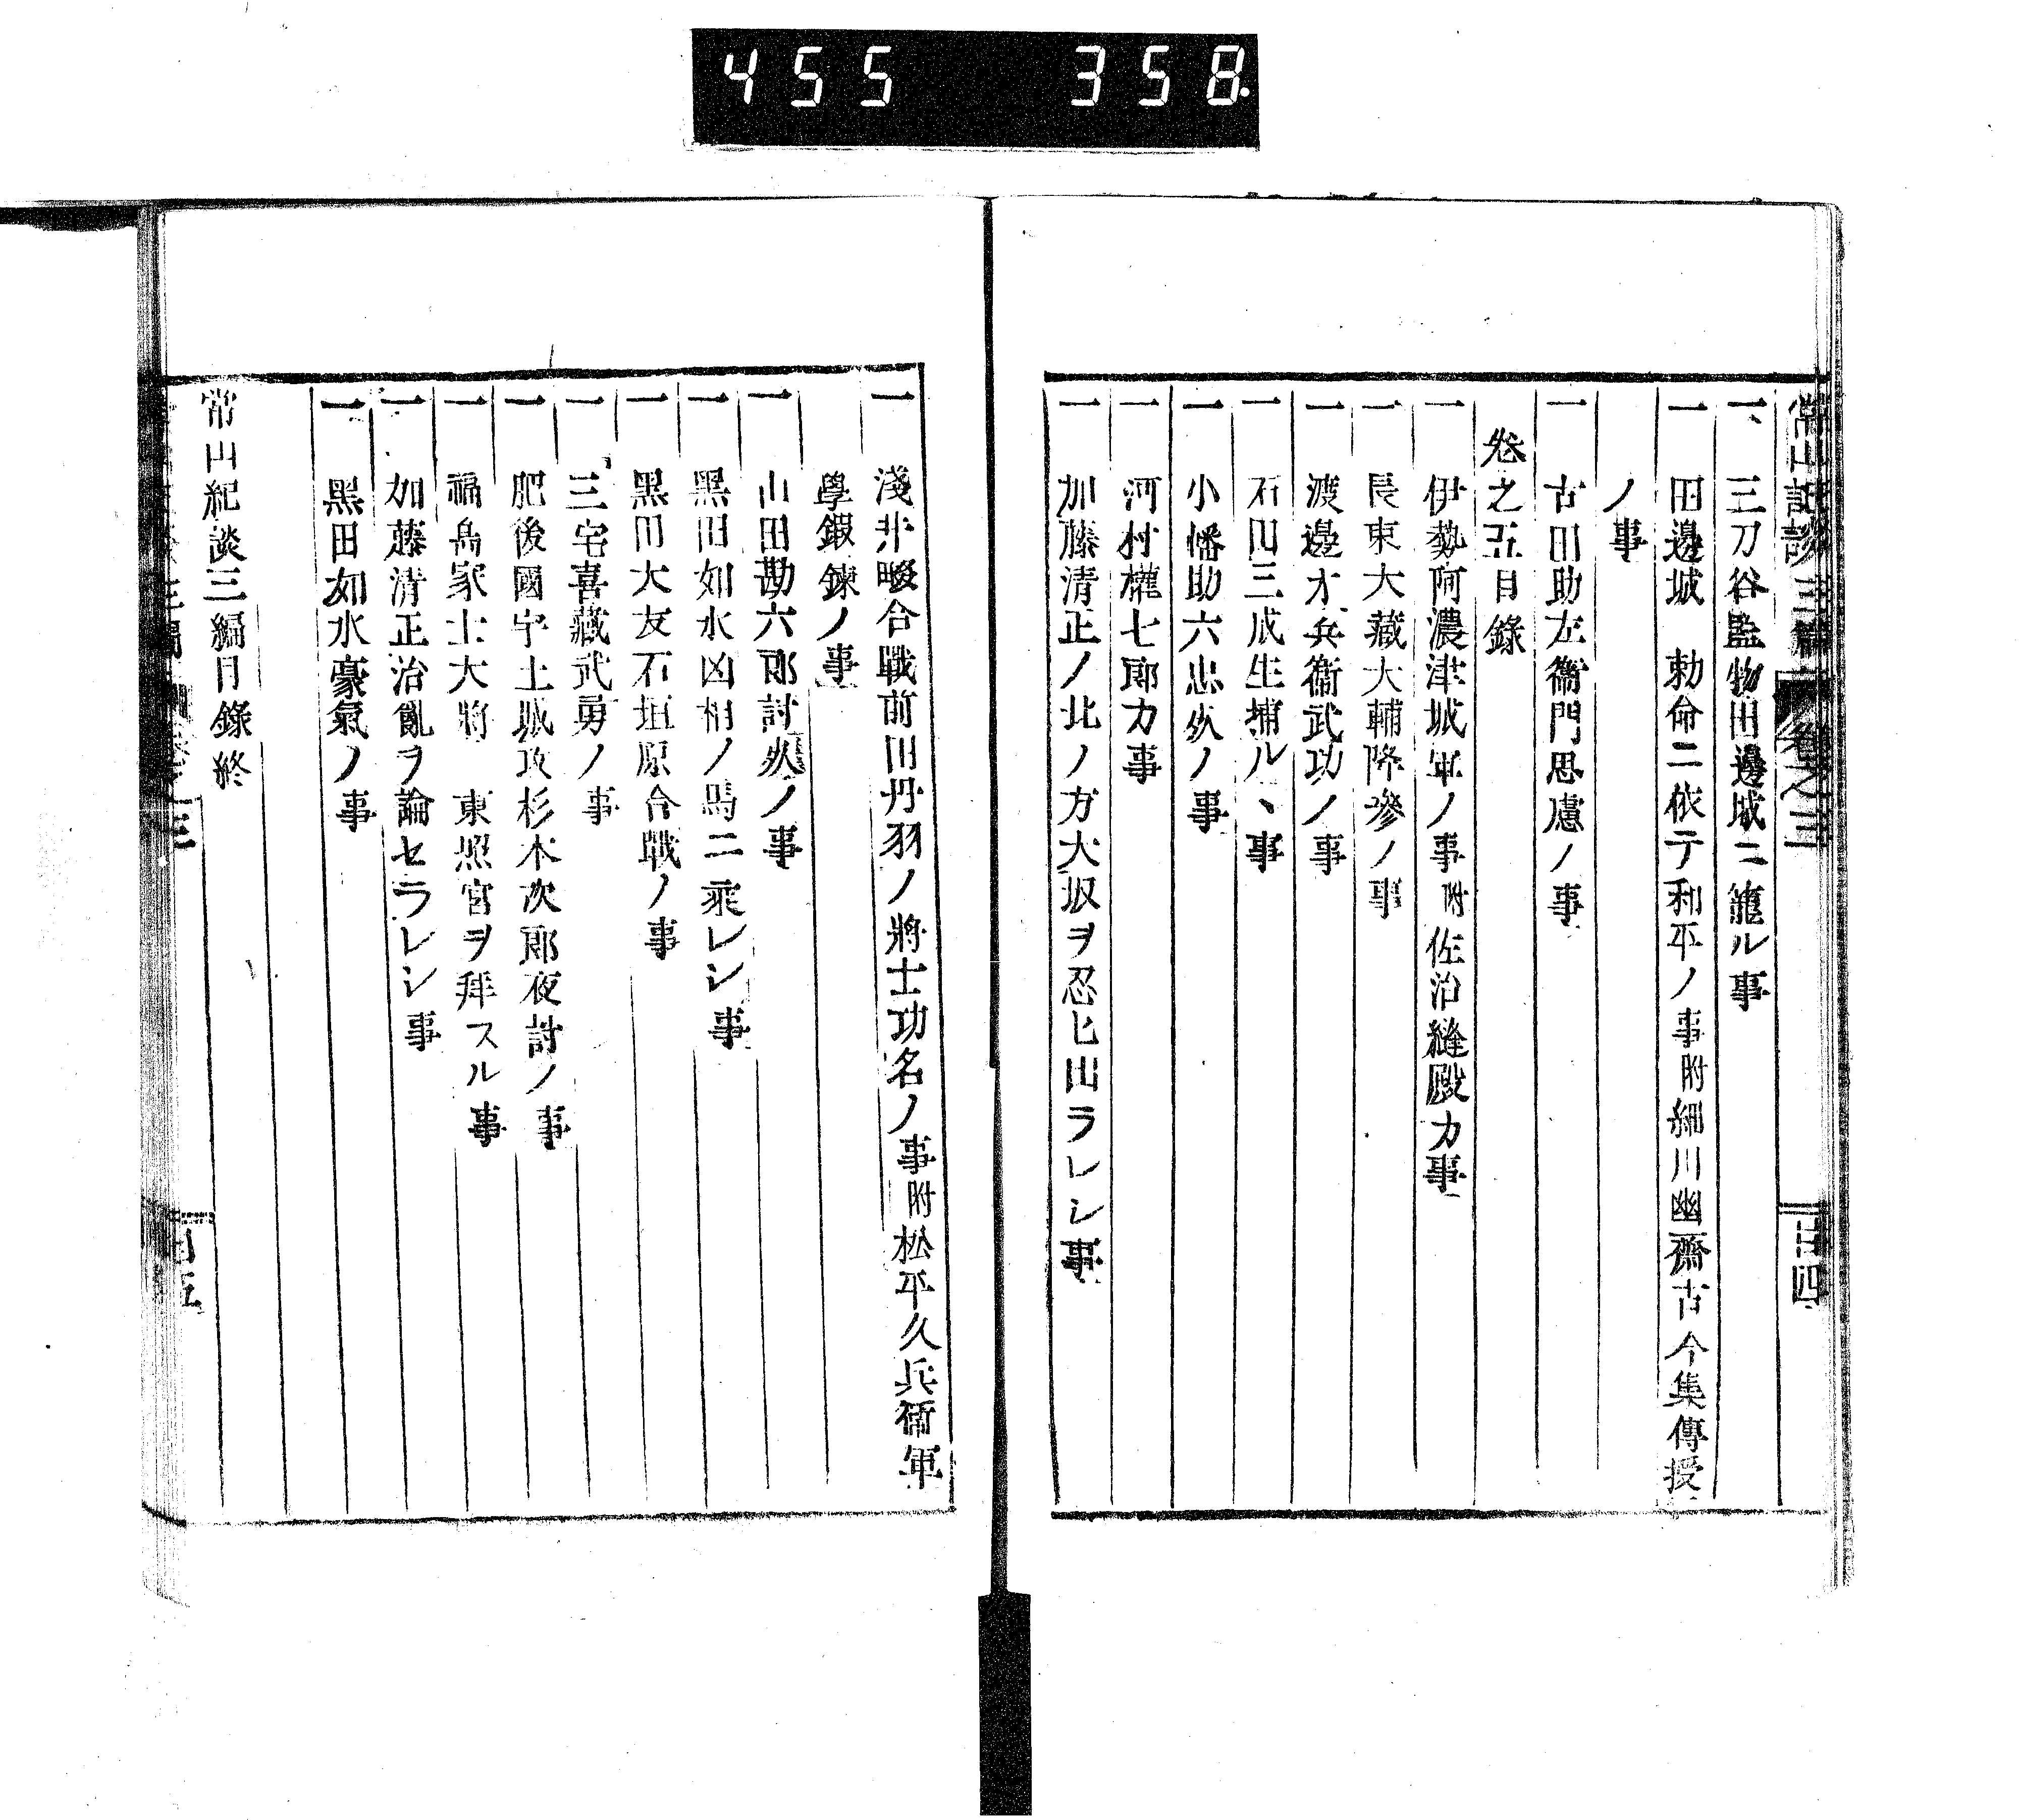 455 358
常山記談三編 卷之三 目四
一 三刀谷監物田邊城ニ籠ル事
一 田邊城 勅命ニ依テ和平ノ事附細川幽齋古今集傳授
ノ事
一 古田助左衞門思慮ノ事
卷之五目錄
一 伊勢阿濃津城軍ノ事附佐治縫殿カ事
一 長東大藏大輔降參ノ事
一 渡邊才兵衞武功ノ事
一 石田三成生捕ルヽ事
一 小幡助六忠死ノ事
一 河村權七郎カ事
一 加藤清正ノ北ノ方大坂ヲ忍ヒ出ラレシ事
一 淺井畷合戰前田丹羽ノ將士功名ノ事附松平久兵衞軍
學鍛鍊ノ事
一 山田勘六郎討死ノ事
一 黑田如水凶相ノ馬ニ乘レシ事
一 黑田大友石垣原合戰ノ事
一 三宅喜藏武勇ノ事
一 肥後國宇土城攻杉本次郎夜討ノ事
一 福島家士大將 東照宮ヲ拜スル事
一 加藤清正治亂ヲ論セラレシ事
一 黑田如水豪氣ノ事
常山紀談三編目錄終